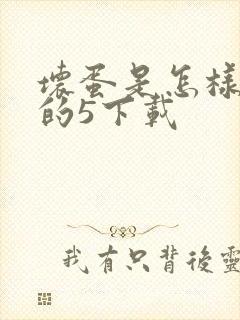 壞蛋是怎樣
的5下載
我有只背後靈